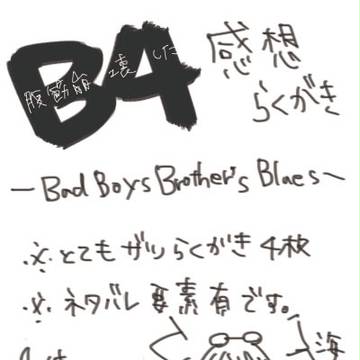 B4
腹筋崩壊した
感想
らくがき
—Bad Boys Brother's Blaes~
※とてもザツらくがき4枚
※ネタバレ要素有です。
海